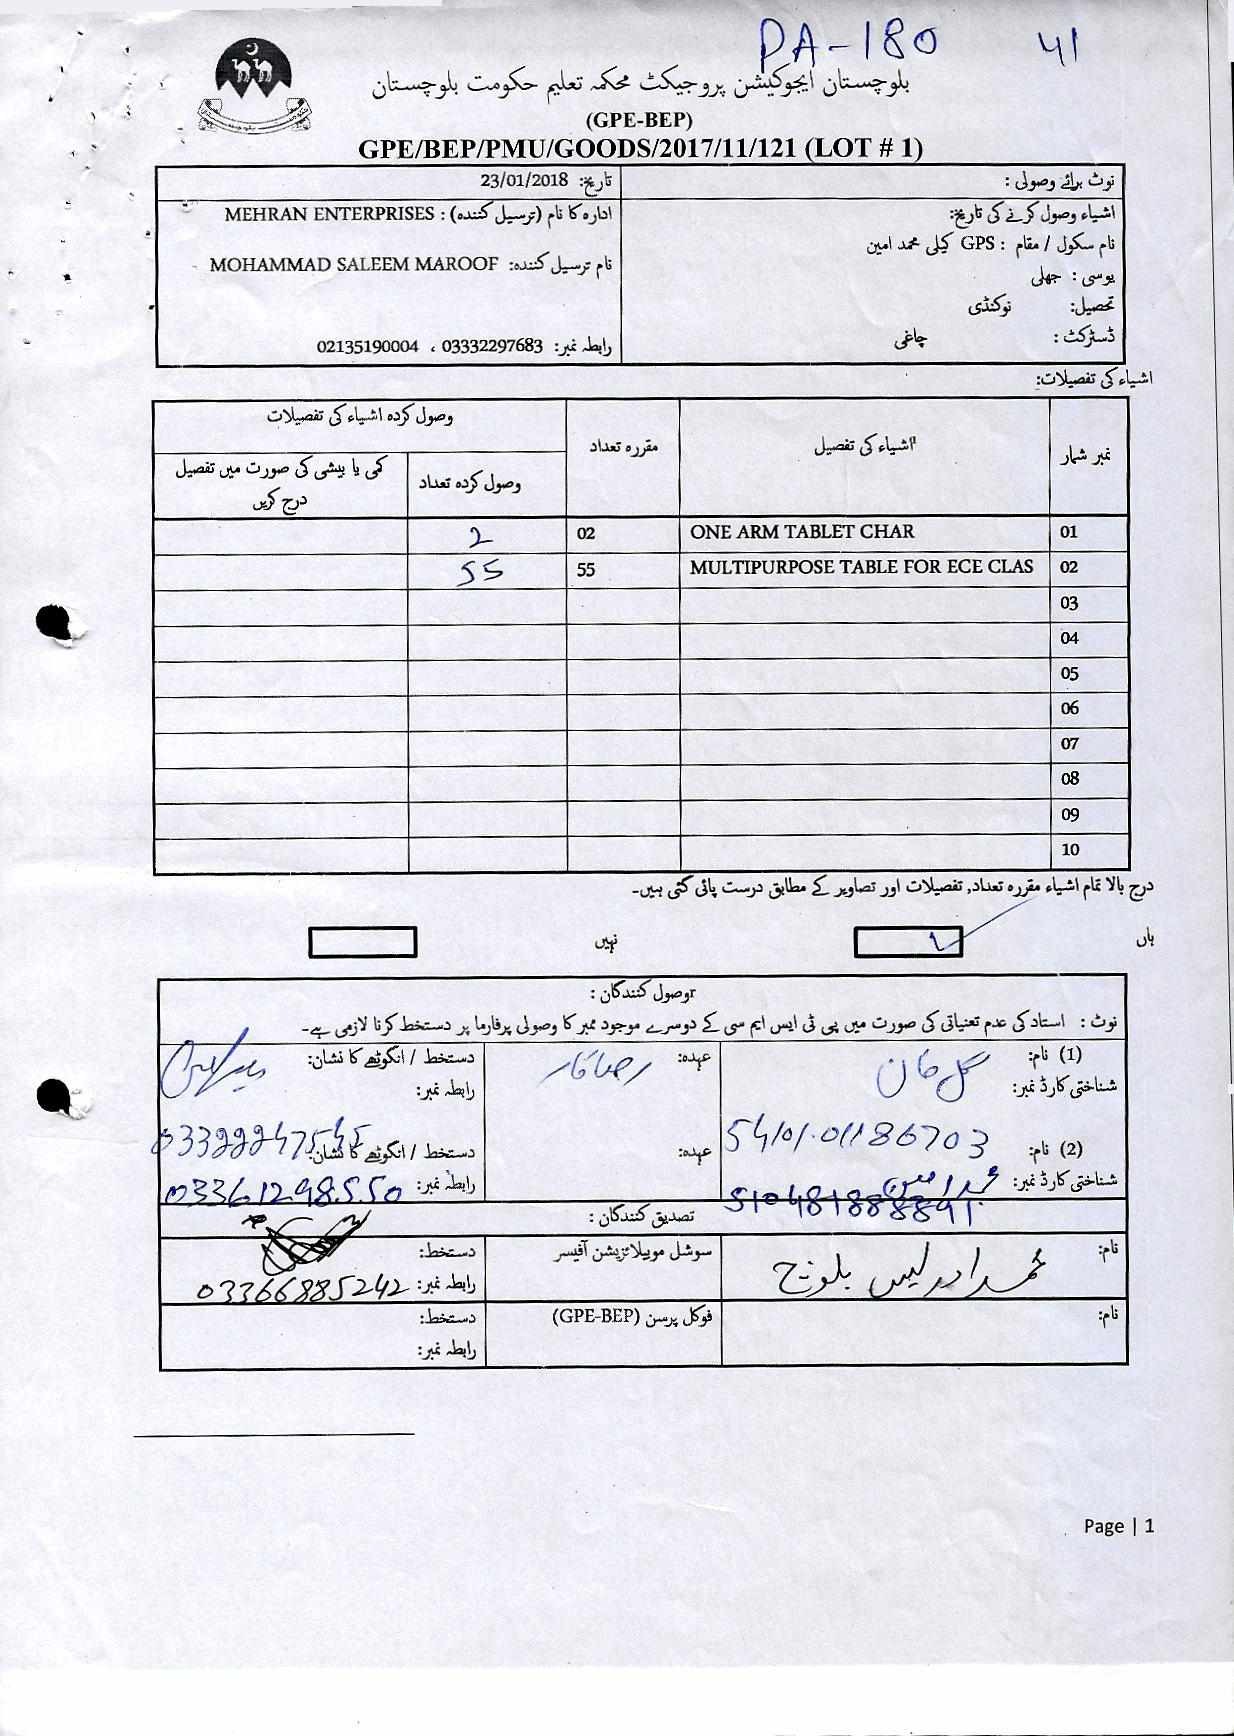 PA-180 41
بلوچستان ایجوکیشن پروجیکٹ محکمہ تعلیم حکومت بلوچستان
(GPE-BEP)
GPE/BEP/PMU/GOODS/2017/11/121 (LOT # 1)
نوٹ برائے وصولی :
اشیاء وصول کرنے کی تاریخ:
نام سکول / مقام : GPS کیلی محمد امین
یوسی : جھلی
تحصیل: نوکنڈی
ڈسٹرکٹ : چاغی
تاریخ: 23/01/2018
ادارہ کا نام (ترسیل کنندہ) : MEHRAN ENTERPRISES
نام ترسیل کنندہ: MOHAMMAD SALEEM MAROOF
رابطہ نمبر: 03332297683 ، 02135190004
اشیاء کی تفصیلات:
نمبر شمار اشیاء کی تفصیل مقررہ تعداد وصول کردہ اشیاء کی تفصیلات
وصول کردہ تعداد کمی یا بیشی کی صورت میں تفصیل درج کریں
01 ONE ARM TABLET CHAR 02 2
02 MULTIPURPOSE TABLE FOR ECE CLAS 55 55
03
04
05
06
07
08
09
10
درج بالا تمام اشیاء مقررہ تعداد, تفصیلات اور تصاویر کے مطابق درست پائی گئی ہیں۔
ہاں نہیں
وصول کنندگان :
نوٹ : استاد کی عدم تعنیاتی کی صورت میں پی ٹی ایس ایم سی کے دوسرے موجود ممبر کا وصولی پرفارما پر دستخط کرنا لازمی ہے۔
(1) نام: گل خان عہدہ: رضاکار دستخط / انگوٹھے کا نشان:
شناختی کارڈ نمبر: رابطہ نمبر:
54101.01186703 03322247545
(2) نام: عہدہ: دستخط / انگوٹھے کا نشان:
شناختی کارڈ نمبر: محمد امین رابطہ نمبر: 03361298550
تصدیق کنندگان :
نام: محمد ادریس بلوچ سوشل موبیلائزیشن آفیسر دستخط:
رابطہ نمبر: 03366885242
نام: فوکل پرسن (GPE-BEP) دستخط:
رابطہ نمبر:
Page | 1